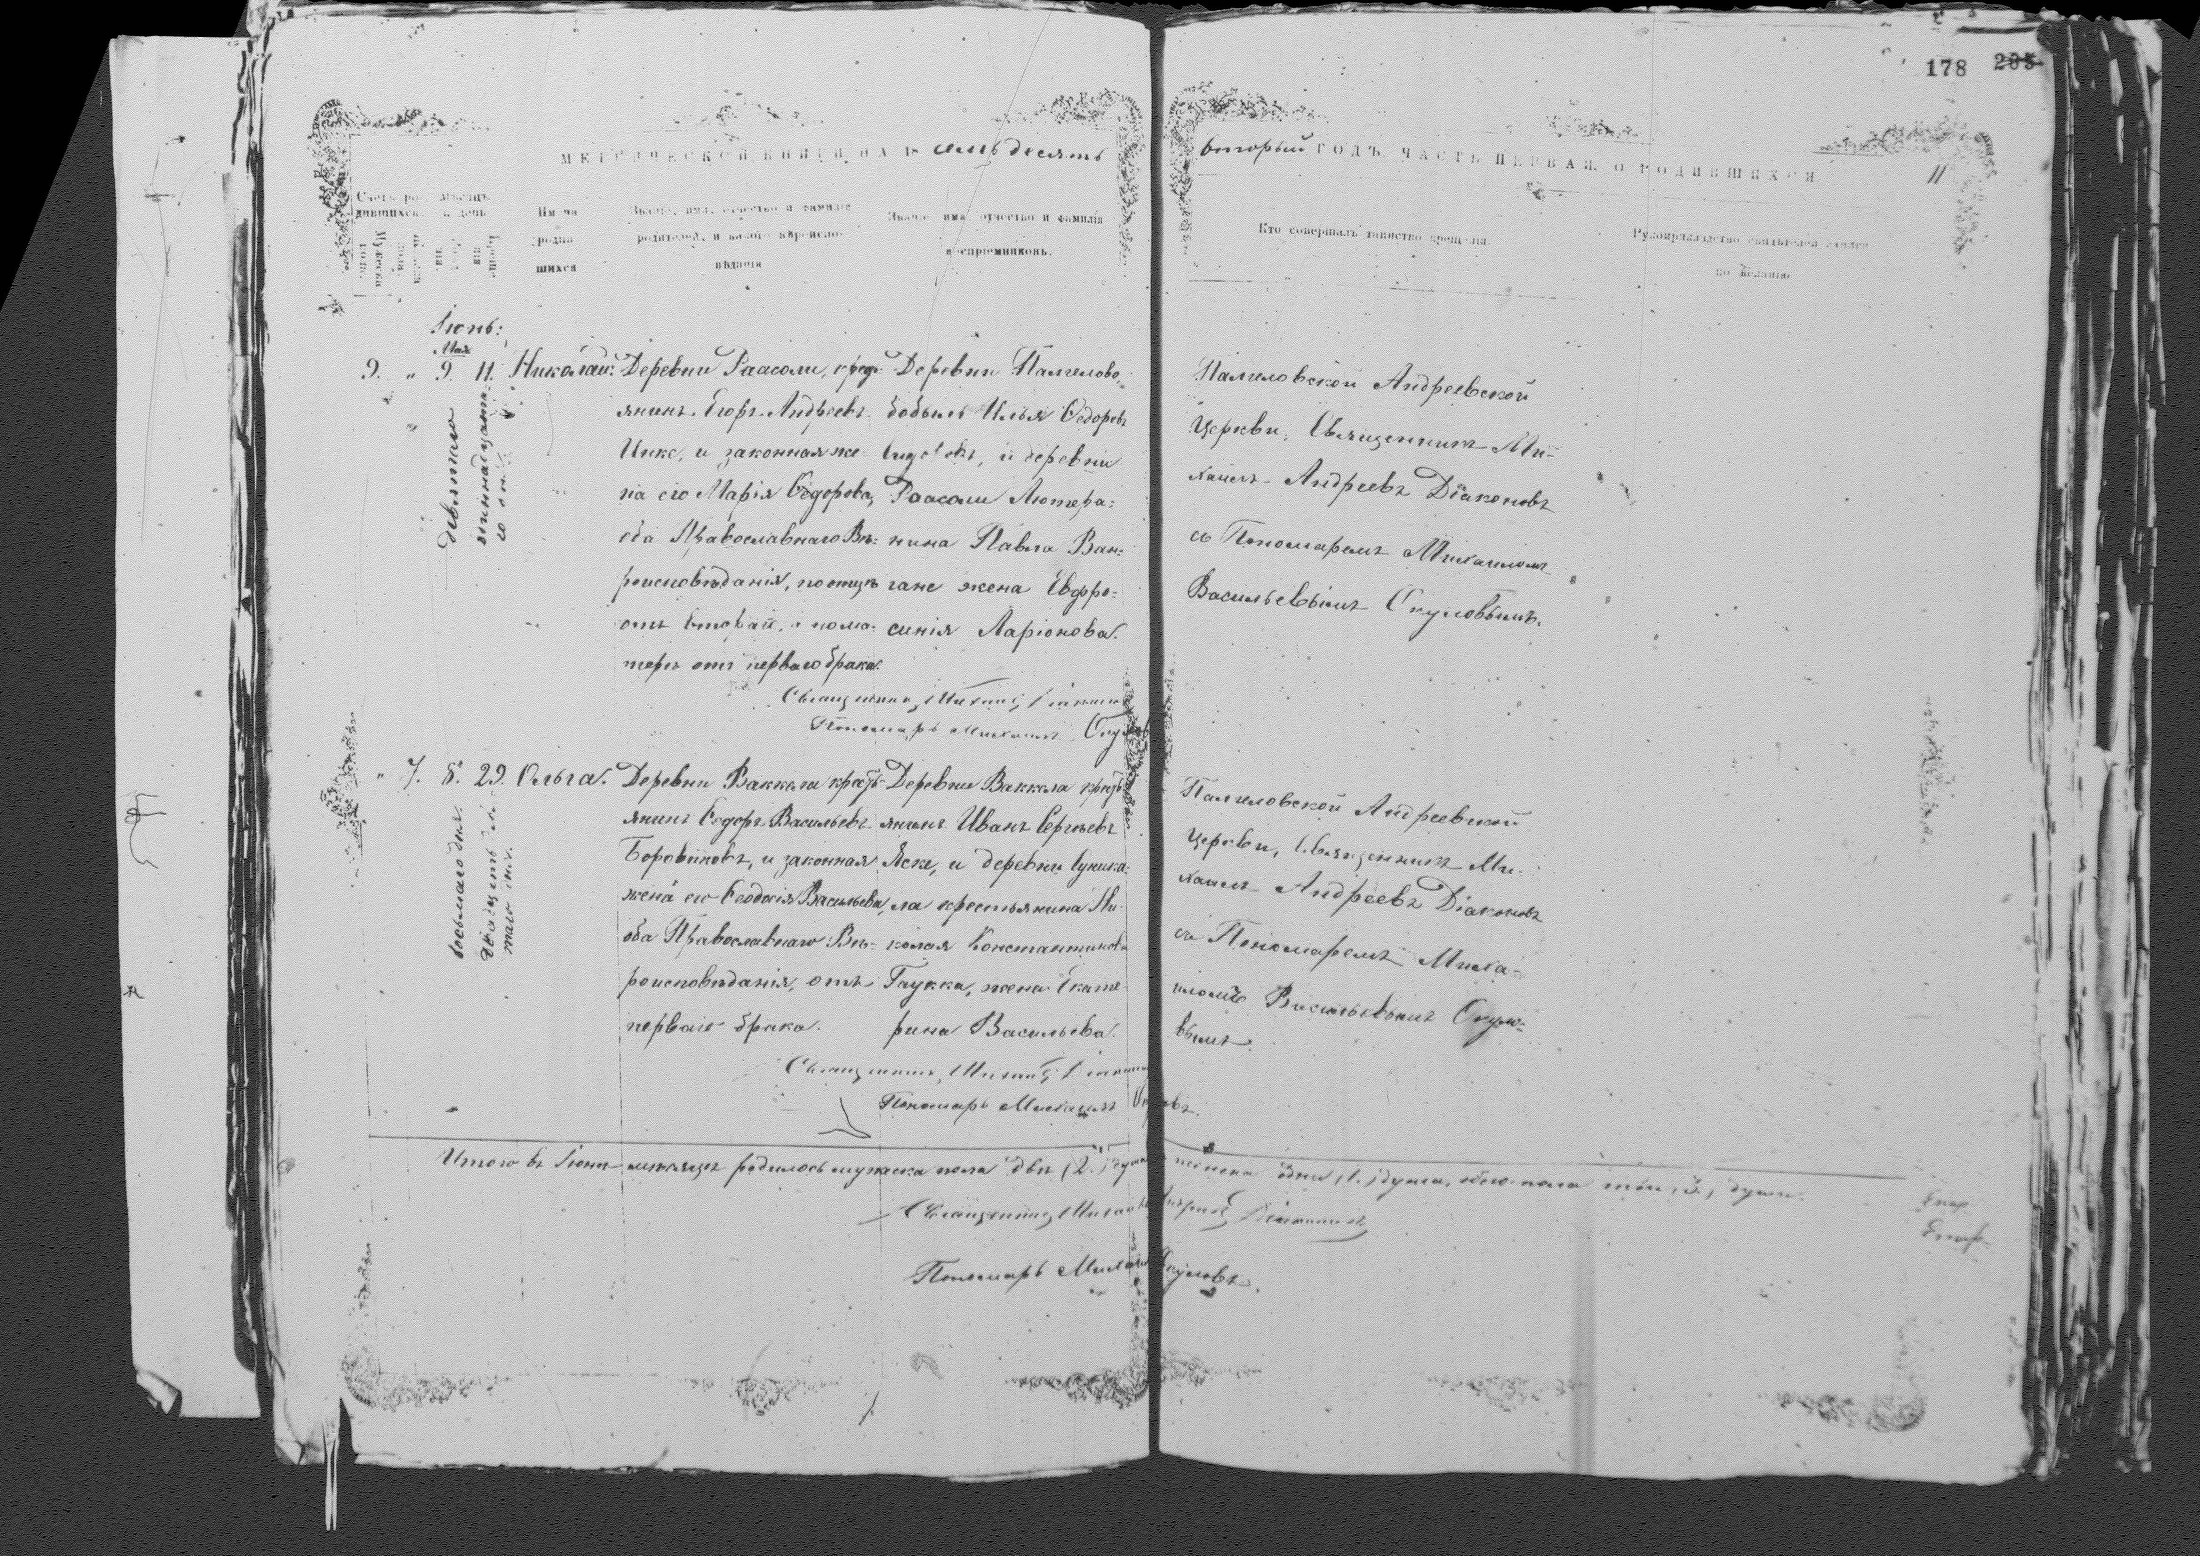 178 205
МЕТРИЧЕСКОЙ КНИГИ НА 18 семьдесятъ
вторый ГОДЪ, ЧАСТЬ ПЕРВАЯ, О РОДИВШИХСЯ
11
Счетъ ро-
дившихся.
Мѣсяцъ
и день
Имена
родив-
шихся
Званіе, имя, отчество и фамилія
родителей, и какого вѣроиспо-
вѣданія
Званіе, имя, отчество и фамилія
воспріемниковъ.
Кто совершалъ таинство крещенія
Рукоприкладство свидѣтелей записи
по желанію
Іюнь:
Мая
9. " 9. 11. Николай.
девятаго
одиннадцата
го
Деревни Раасоли, крес-
янинъ Егоръ Андреевъ
Инкс, и законная же
на его Марія Ѳедорова,
оба Православнаго Вѣ-
роисповѣданія, по отцѣ
отъ втораго, а по ма-
тери отъ перваго брака.
Деревни Палгелово
бобыль Илья Ѳедоровъ
и деревни
Раасоли Лютера-
нина Павла Ван-
гане жена Евфро-
синія Ларіонова.
Палгеловской Андреевской
Церкви, Священникъ Ми-
хаилъ Андреевъ Діаконовъ
съ Пономаремъ Михаиломъ
Васильевымъ Окуловымъ.
Священникъ Михаилъ
Пономарь Михаилъ Окуловъ
" 7. 8. 29. Ольга.
восьмаго дня.
двадцать де
таго
Деревни Ваккола крест-
янинъ Ѳедоръ Васильевъ
Боровиковъ, и законная
жена его Ѳеодосія Васильева,
оба Православнаго Вѣ-
роисповѣданія, отъ
перваго брака.
Деревни Ваккола крест-
янинъ Иванъ Сергѣевъ
Яске, и деревни Суника-
ла крестьянина Ни-
колая Константинова
Гаукка, жена Екате-
рина Васильева.
Палгеловской Андреевской
Церкви, Священникъ Ми-
хаилъ Андреевъ Діаконовъ
съ Пономаремъ Миха-
иломъ Васильевымъ Окуло-
вымъ.
Священникъ Михаилъ
Пономарь Михаилъ Окуловъ.
Итого въ Іюнѣ мѣсяцѣ родилось мужеска пола двѣ (2.) души, женска одна (1.) душа, обоего пола три (3.) души.
Священникъ Михаилъ Андреевъ Діаконовъ
Пономарь Михаилъ Окуловъ.